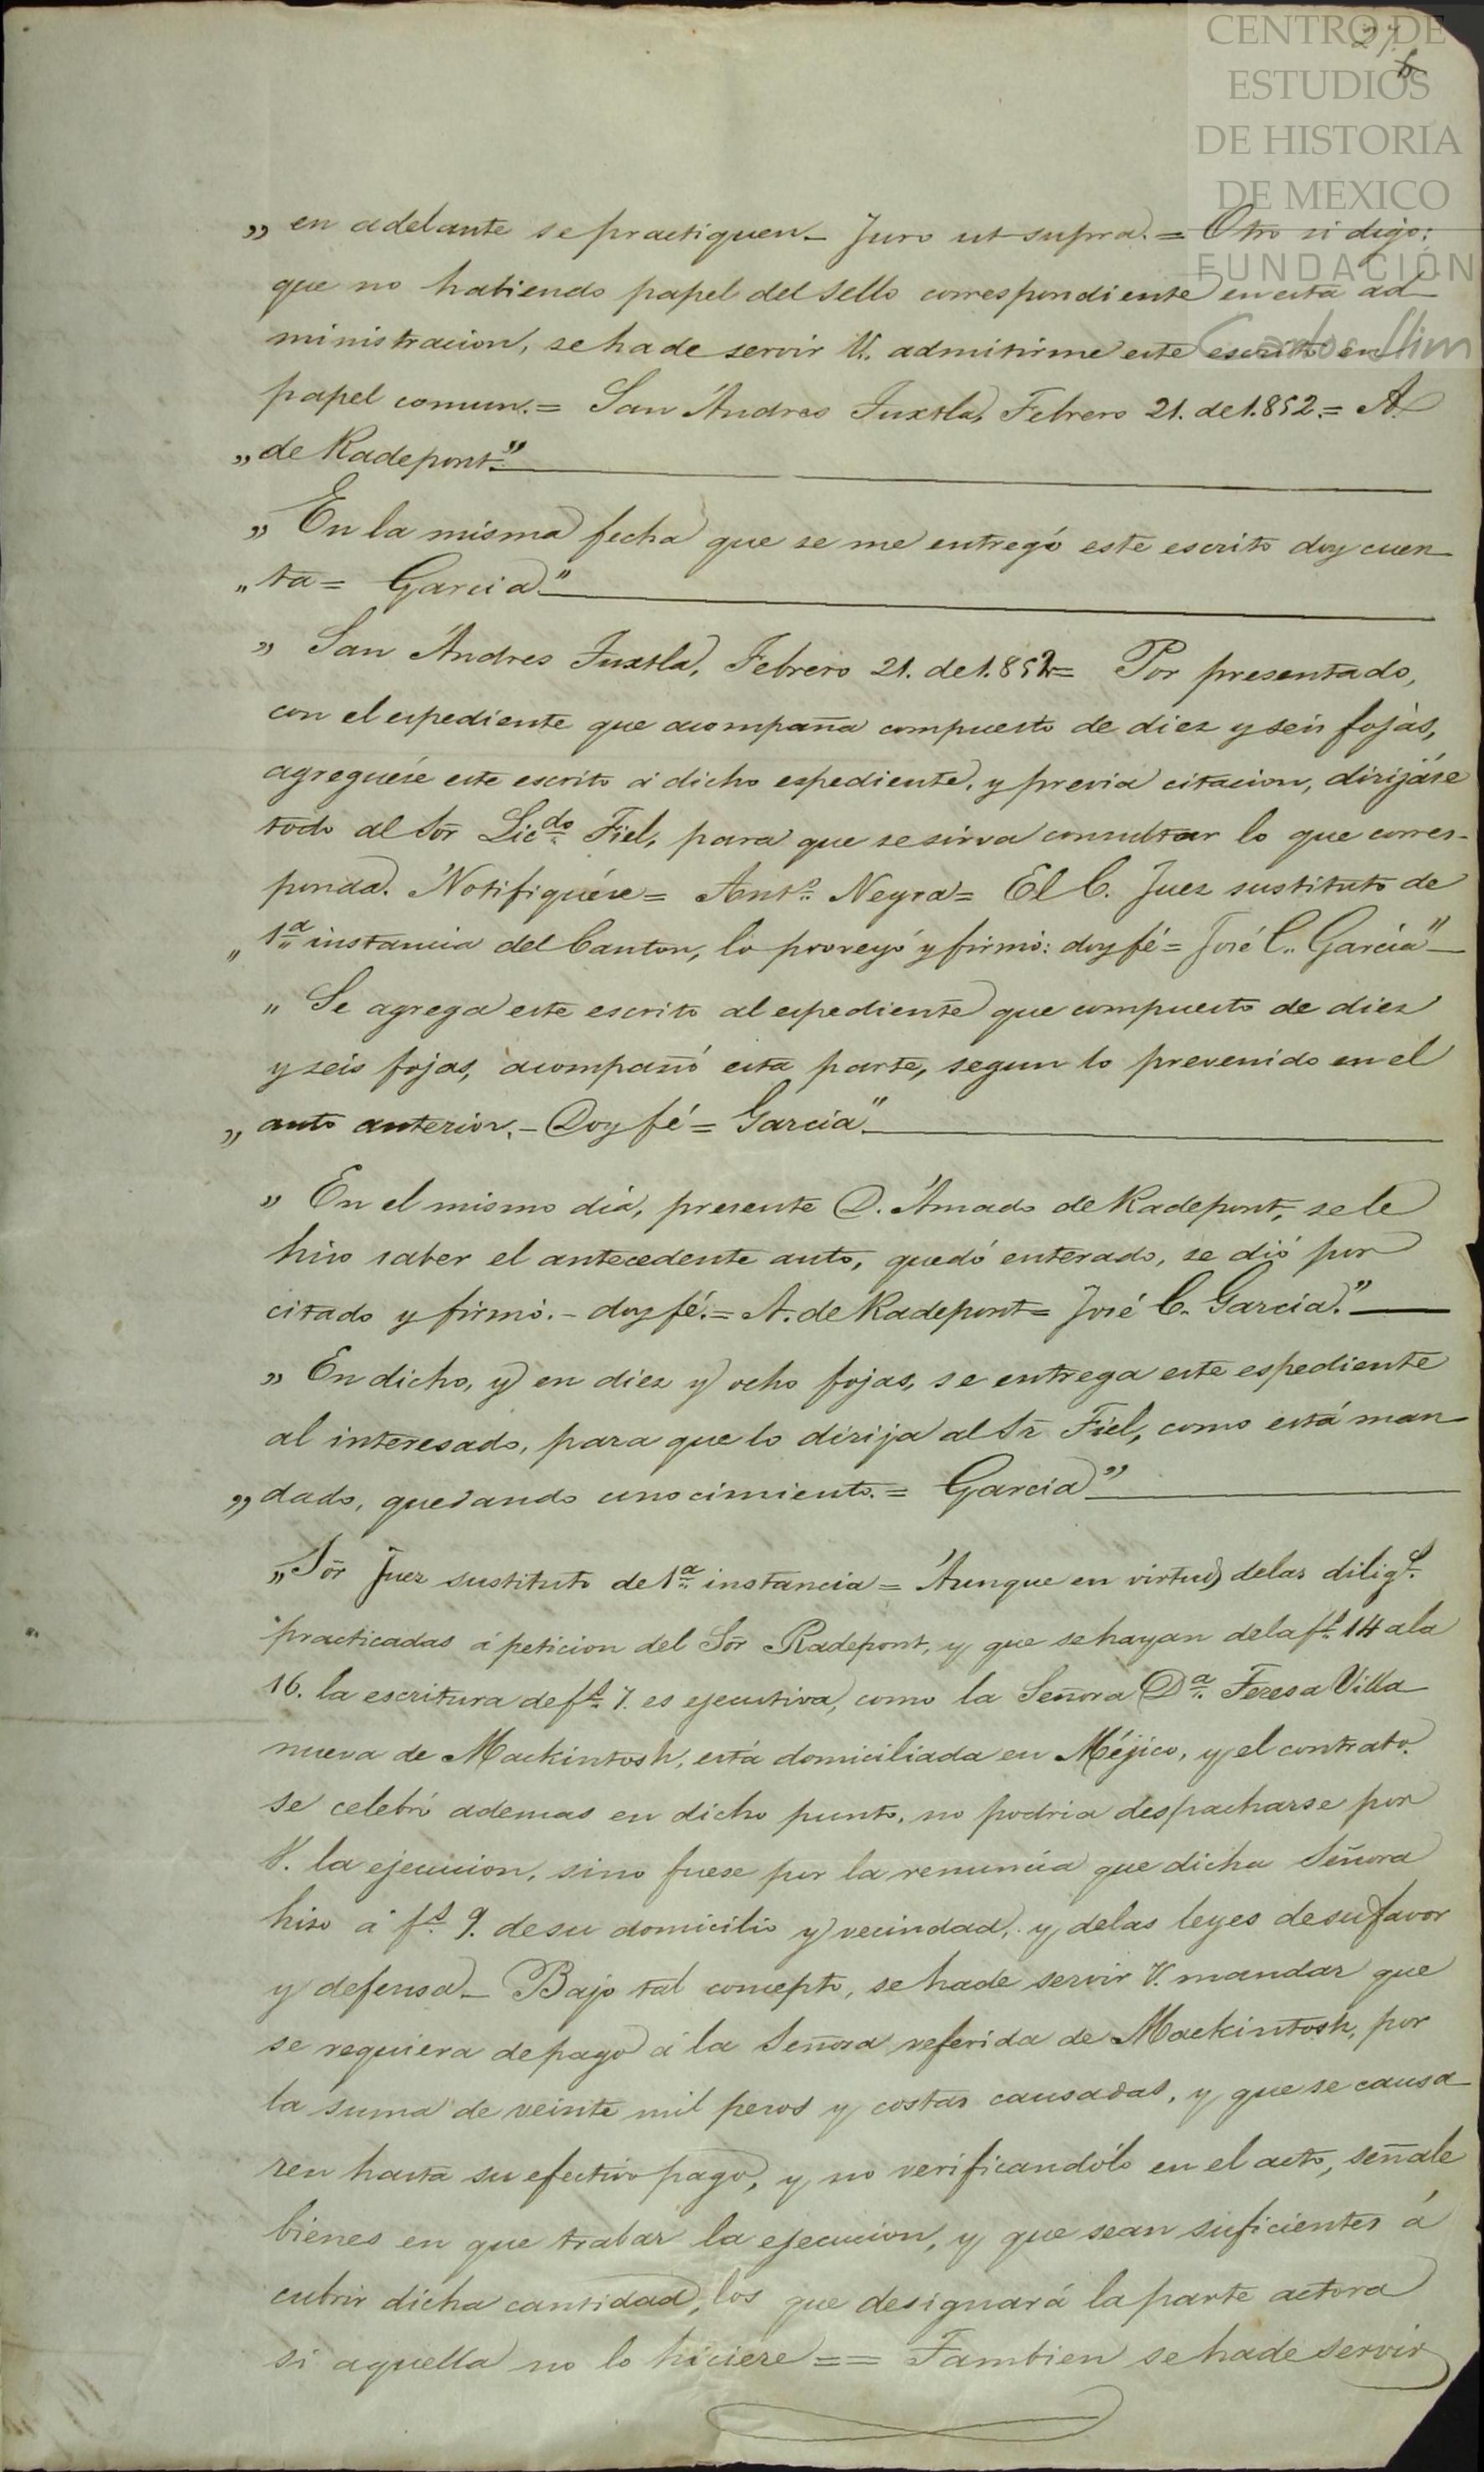 CENTRO DE
ESTUDIOS
DE HISTORIA
DE MÉXICO
FUNDACIÓN
Carlos Slim
27.
„ en adelante se practiquen - Juro ut supra. = Otro si digo:
que no habiendo papel del sello correspondiente en esta ad-
ministracion, se ha de servir V. admitirme este escrito en
papel comun. = San Andres Tuxtla, Febrero 21. de 1.852. = A.
„ de Radepont."
„ En la misma fecha que se me entregó este escrito doy cuen-
„ ta = Garcia"
„ San Andres Tuxtla, Febrero 21. de 1.852 = Por presentado,
con el espediente que acompaña compuesto de diez y seis fojas,
agreguése este escrito á dicho espediente, y previa citacion, dirijáse
todo al Sor̃ Licdo. Fiel, para que se sirva consultar lo que corres-
ponda. Notifiquése = Anto. Negra = El C. Juez sustituto de
„ 1a. instancia del Canton, lo proveyó y firmó: doy fé = José C. Garcia" -
„ Se agrega este escrito al espediente que compuesto de diez
y seis fojas, acompañó esta parte, segun lo prevenido en el
„ auto anterior. - Doy fé = Garcia"
„ En el mismo dia, presente D. Amado de Radepont, se le
hiso saber el antecedente auto, quedó enterado, se dió por
citado y firmó. - doy fé. = A. de Radepont = José C. Garcia."
„ En dicho, y en diez y ocho fojas, se entrega este espediente
al interesado, para que lo dirija al Sr̃ Fiel, como está man-
„ dado, quedando conocimiento. = Garcia"
„ Sor̃ Juez sustituto de 1a. instancia = Aunque en virtud de las diligs.
practicadas á peticion del Sor̃ Radepont, y que se hayan de la fs. 14 a la
16. la escritura de fs. 7. es ejecutiva, como la Señora Da. Teresa Villa-
nueva de Mackintosh, está domiciliada en Méjico, y el contrato
se celebró ademas en dicho punto, no podria despacharse por
V. la ejecucion, sino fuese por la renuncia que dicha Señora
hiso á fs. 9. de su domicilio y vecindad, y de las leyes de su favor
y defensa - Bajo tal concepto, se ha de servir V. mandar que
se requiera de pago á la Señora referida de Mackintosh, por
la suma de veinte mil pesos y costas causadas, y que se causa-
ren hasta su efectivo pago, y no verificandólo en el acto, señale
bienes en que trabar la ejecucion, y que sean suficientes á
cubrir dicha cantidad, los que designará la parte actora
si aquella no lo hiciere = = Tambien se ha de servir